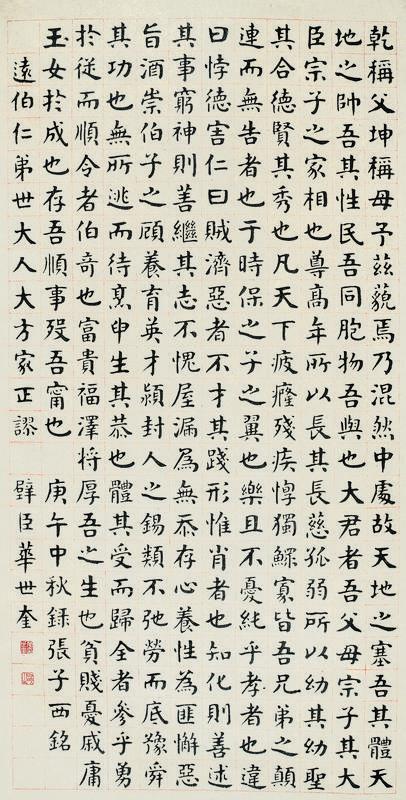 乾稱父坤稱母予茲藐焉乃混然中處故天地之塞吾其體天
地之帥吾其性民吾同胞物吾與也大君者吾父母宗子其大
臣宗子之家相也尊高年所以長其長慈孤弱所以幼其幼聖
其合德賢其秀也凡天下疲癃殘疾惸獨鰥寡皆吾兄弟之顛
連而無告者也于時保之子之翼也樂且不憂純乎孝者也違
曰悖德害仁曰賊濟惡者不才其踐形惟肖者也知化則善述
其事窮神則善繼其志不愧屋漏為無忝存心養性為匪懈惡
旨酒崇伯子之顧養育英才潁封人之錫類不弛勞而底豫舜
其功也無所逃而待烹申生其恭也體其受而歸全者參乎勇
於從而順令者伯奇也富貴福澤將厚吾之生也貧賤憂戚庸
玉女於成也存吾順事歿吾甯也 庚午中秋録張子西銘
遠伯仁弟世大人大方家正謬 壁臣華世奎